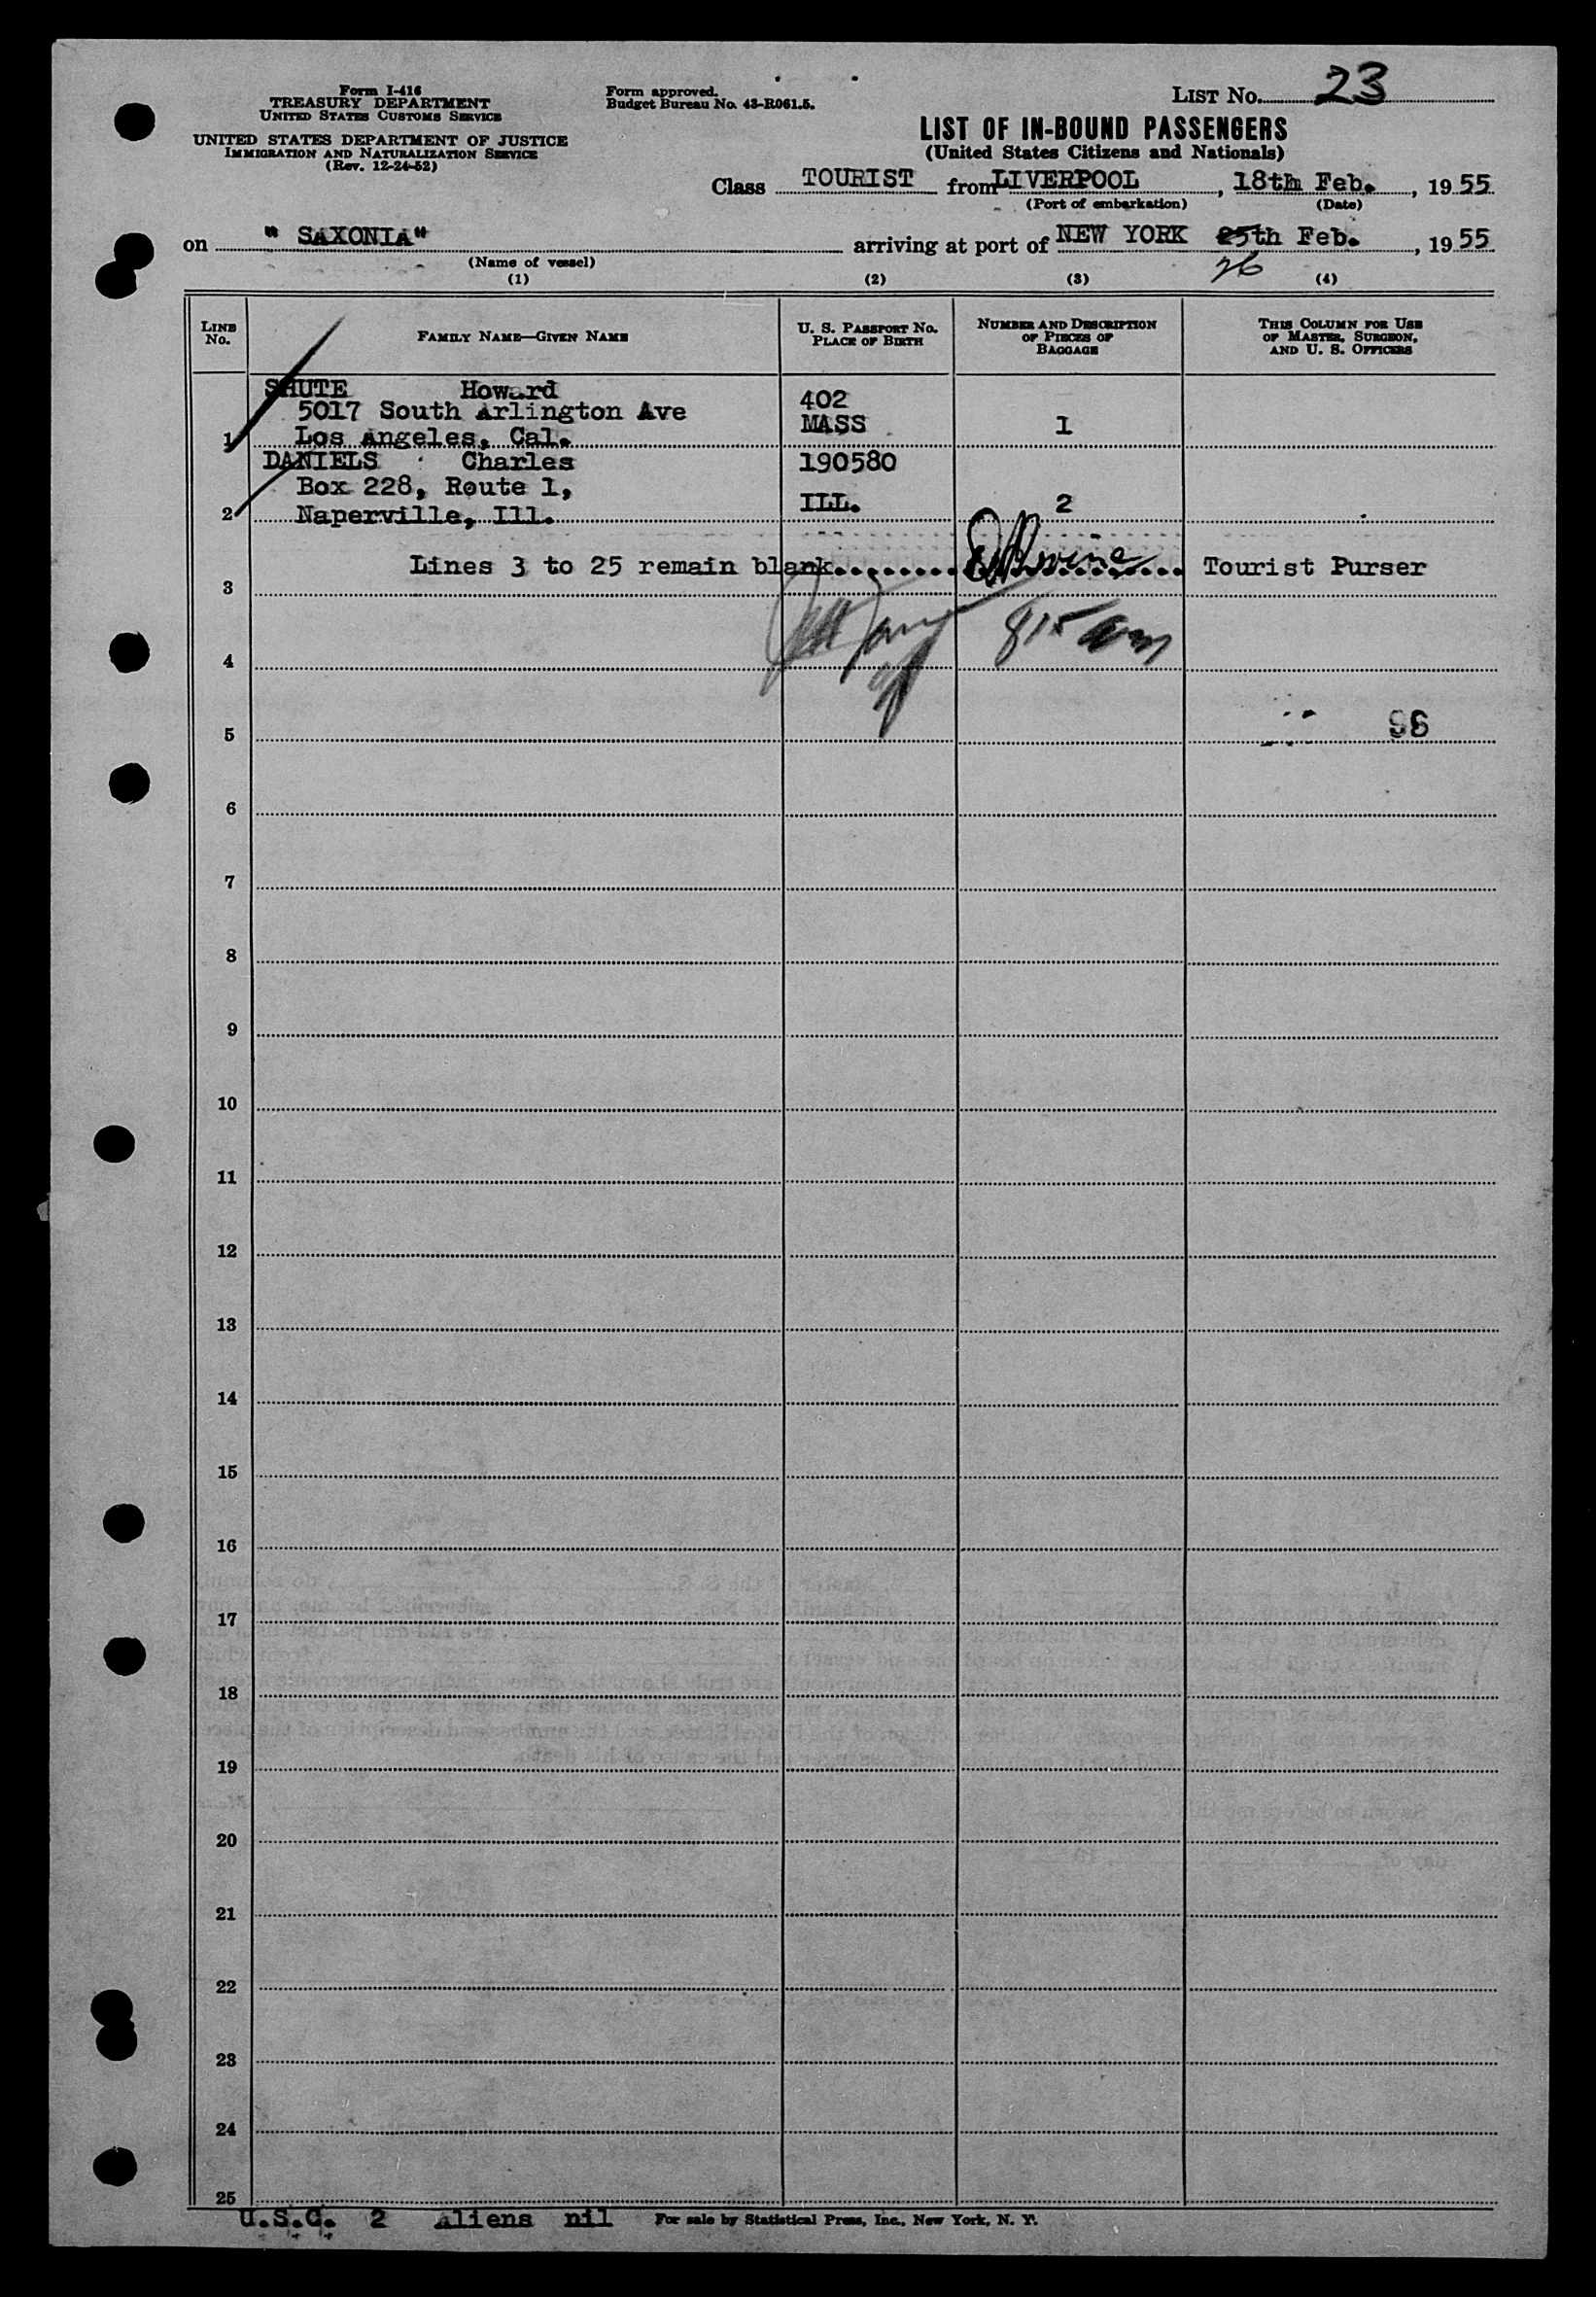 Form I-416
TREASURY DEPARTMENT
UNITED STATES CUSTOMS SERVICE
UNITED STATES DEPARTMENT OF JUSTICE
IMMIGRATION AND NATURALIZATION SERVICE
(Rev. 12-24-52)
Form approved.
Budget Bureau No. 43-R061.5.
LIST No. 23
LIST OF IN-BOUND PASSENGERS
(United States Citizens and Nationals)
Class TOURIST from LIVERPOOL, 18th Feb., 1955
(Port of embarkation) (Date)
on " SAXONIA" arriving at port of NEW YORK 25th Feb., 1955
26
(Name of vessel)
(1) (2) (3) (4)
LINE No. FAMILY NAME—GIVEN NAME U. S. PASSPORT NO. PLACE OF BIRTH NUMBER AND DESCRIPTION OF PIECES OF BAGGAGE THIS COLUMN FOR USE OF MASTER, SURGEON, AND U. S. OFFICERS
SHUTE Howard
5017 South Arlington Ave 402
1 Los Angeles, Cal. MASS 1
DANIELS Charles 190580
Box 228, Route 1,
2 Naperville, Ill. ILL. 2
Lines 3 to 25 remain blank Tourist Purser
3
4
5 96
6
7
8
9
10
11
12
13
14
15
16
17
18
19
20
21
22
23
24
25
U.S.C. 2 Aliens nil For sale by Statistical Press, Inc., New York, N. Y.